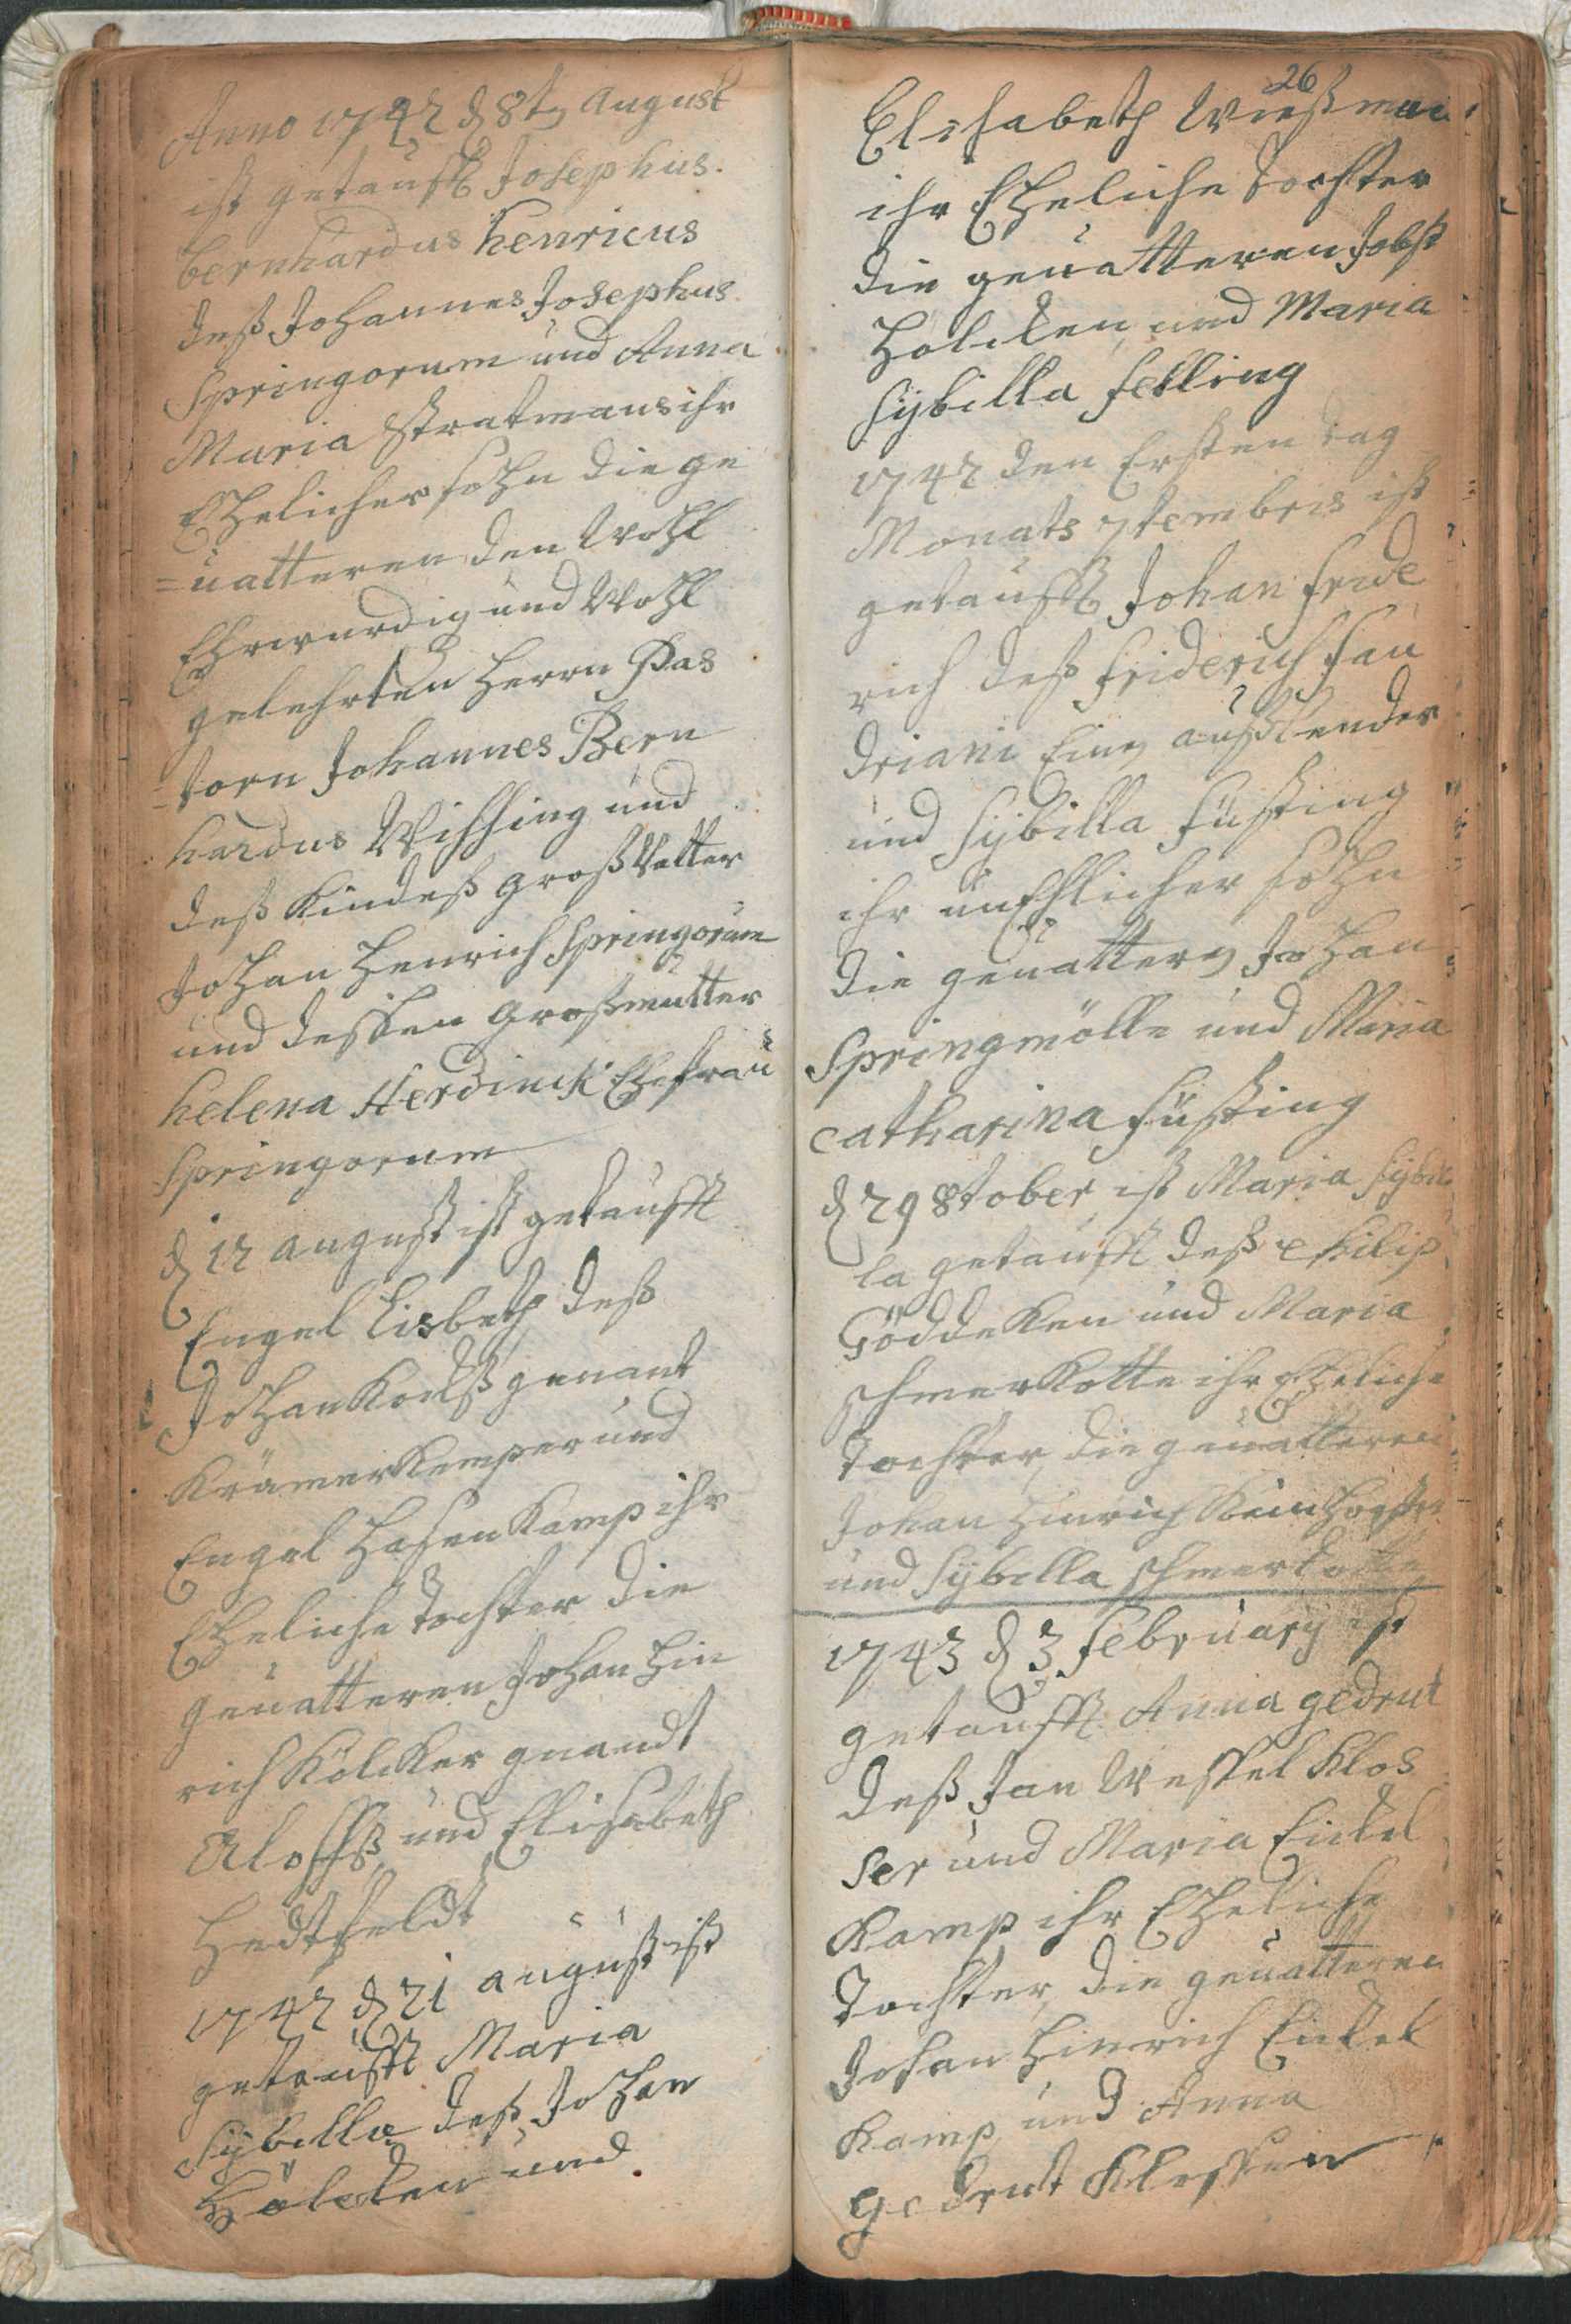 Anno 1742 d 8t August
ist getaufft Josephus
bernhardus henricus
deß Johannes Josephus
Springorum und Anna
Maria Stratmans ihr
Ehelicher sohn die ge
=uatteren den Wohl
Ehrwurdig und Wohl
gelehrten Herrn Pas
=torn Johannes Bern
hardus Wissing und
deß Kindeß großVatter
Johan Henrich Springorum
und dessen großmutter
helena Herdinck Ehefrau
Springorum
d 12 august ist getaufft
Engel Lisbeth deß
Johan genant
Krämerkemper und
Engel Hasenkamp ihr
Eheliche tochter die
geuatteren Johan Hin
rich Kölcker gnandt
Aloffß und Elisabeth
Hedtfeldt
1742 d 21 august ist
getaufft Maria
Sÿbilla deß Johan
Hölcken und
26
Elisabeth Wießman
ihr Eheliche tochter
die geuatteren Jobst
Holcken und Maria
Sÿbilla felling
1742 den Ersten tag
Monats 7tembris ist
getaufft Johan fride
rich deß friderich fan
driani Ein außlender
und Sÿbilla füsting
ihr unEhlicher sohn
die geuattern Johan
Springmölle und Maria
catharina füsting
d 29 8tober ist Maria Sÿbil
la getaufft deß Philip
Göddeken und Maria
schmerkotte ihr Eheliche
tochter, die geuatteren
Johan Hinrich
und Sÿbilla schmerkotte
1743 d 3 februarÿ ist
getaufft Anna gedrut
deß Jan Wessel Klos
ser und Maria Eickel
Kamp ihr Eheliche
tochter, die geuatteren
Johan Hinrich Eickel
Kamp und Anna
gedrut Klossen